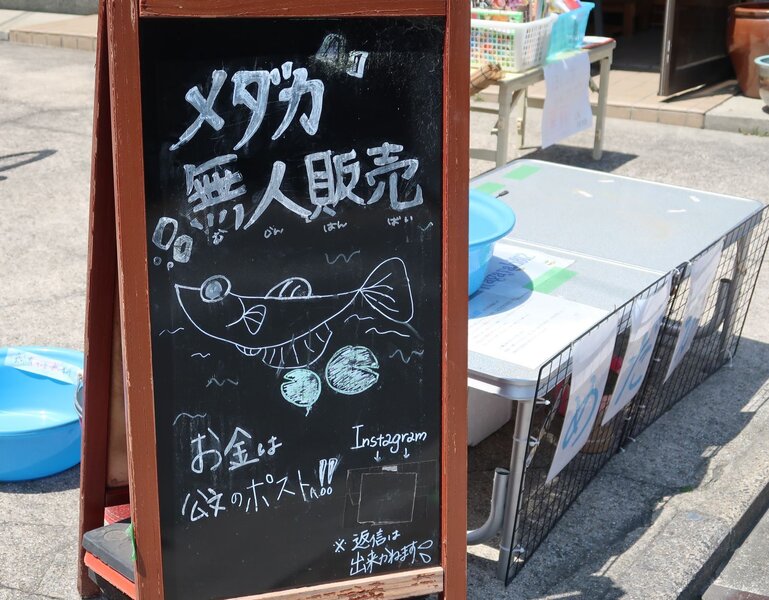 メダカ
無人販売
む じん はん ばい
お金は
公文のポストへ!!
Instagram
※返信は
出来かねます
め
だ